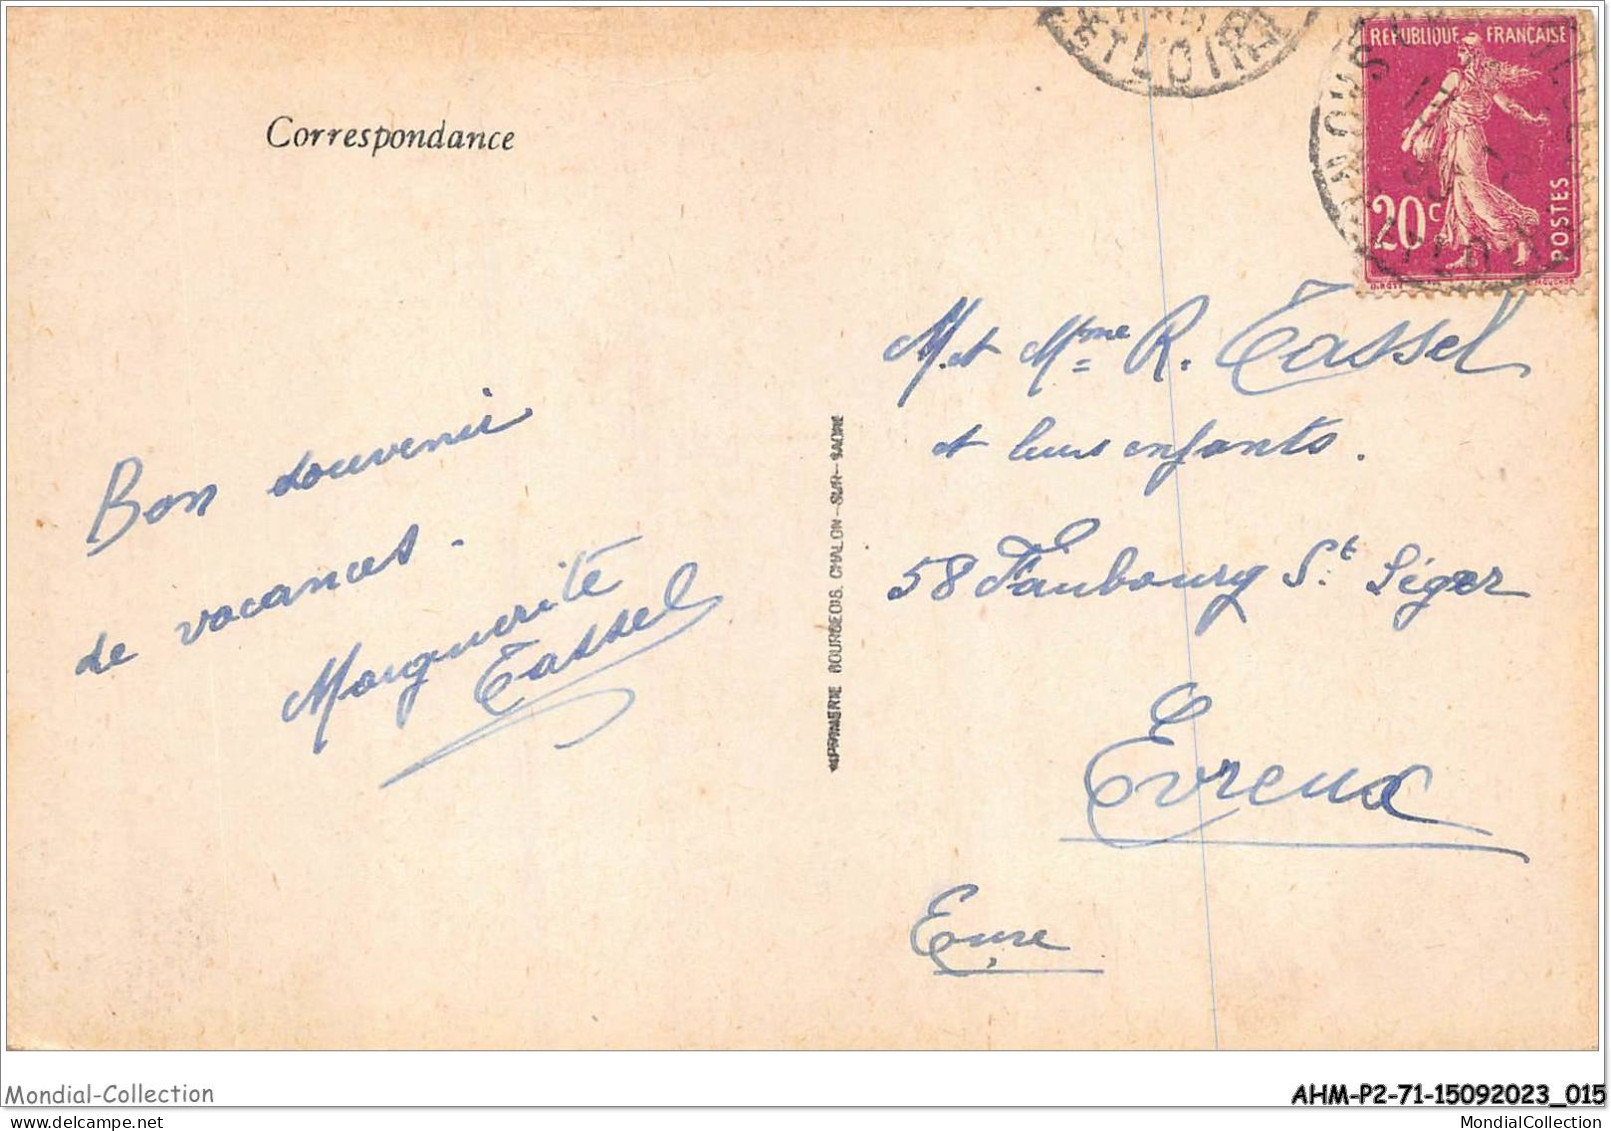 Correspondance
ET LOIRE
REPUBLIQUE FRANÇAISE
20c
POSTES
M. et Mme R. Tassel
et leurs enfants.
58 Faubourg St Léger
Evreux
Eure
Bon souvenir
de vacances.
Marguerite
Tassel
IMPRIMERIE BOURGEOIS, CHALON-SUR-SAONE
Mondial-Collection
AHM-P2-71-15092023_015
MondialCollection